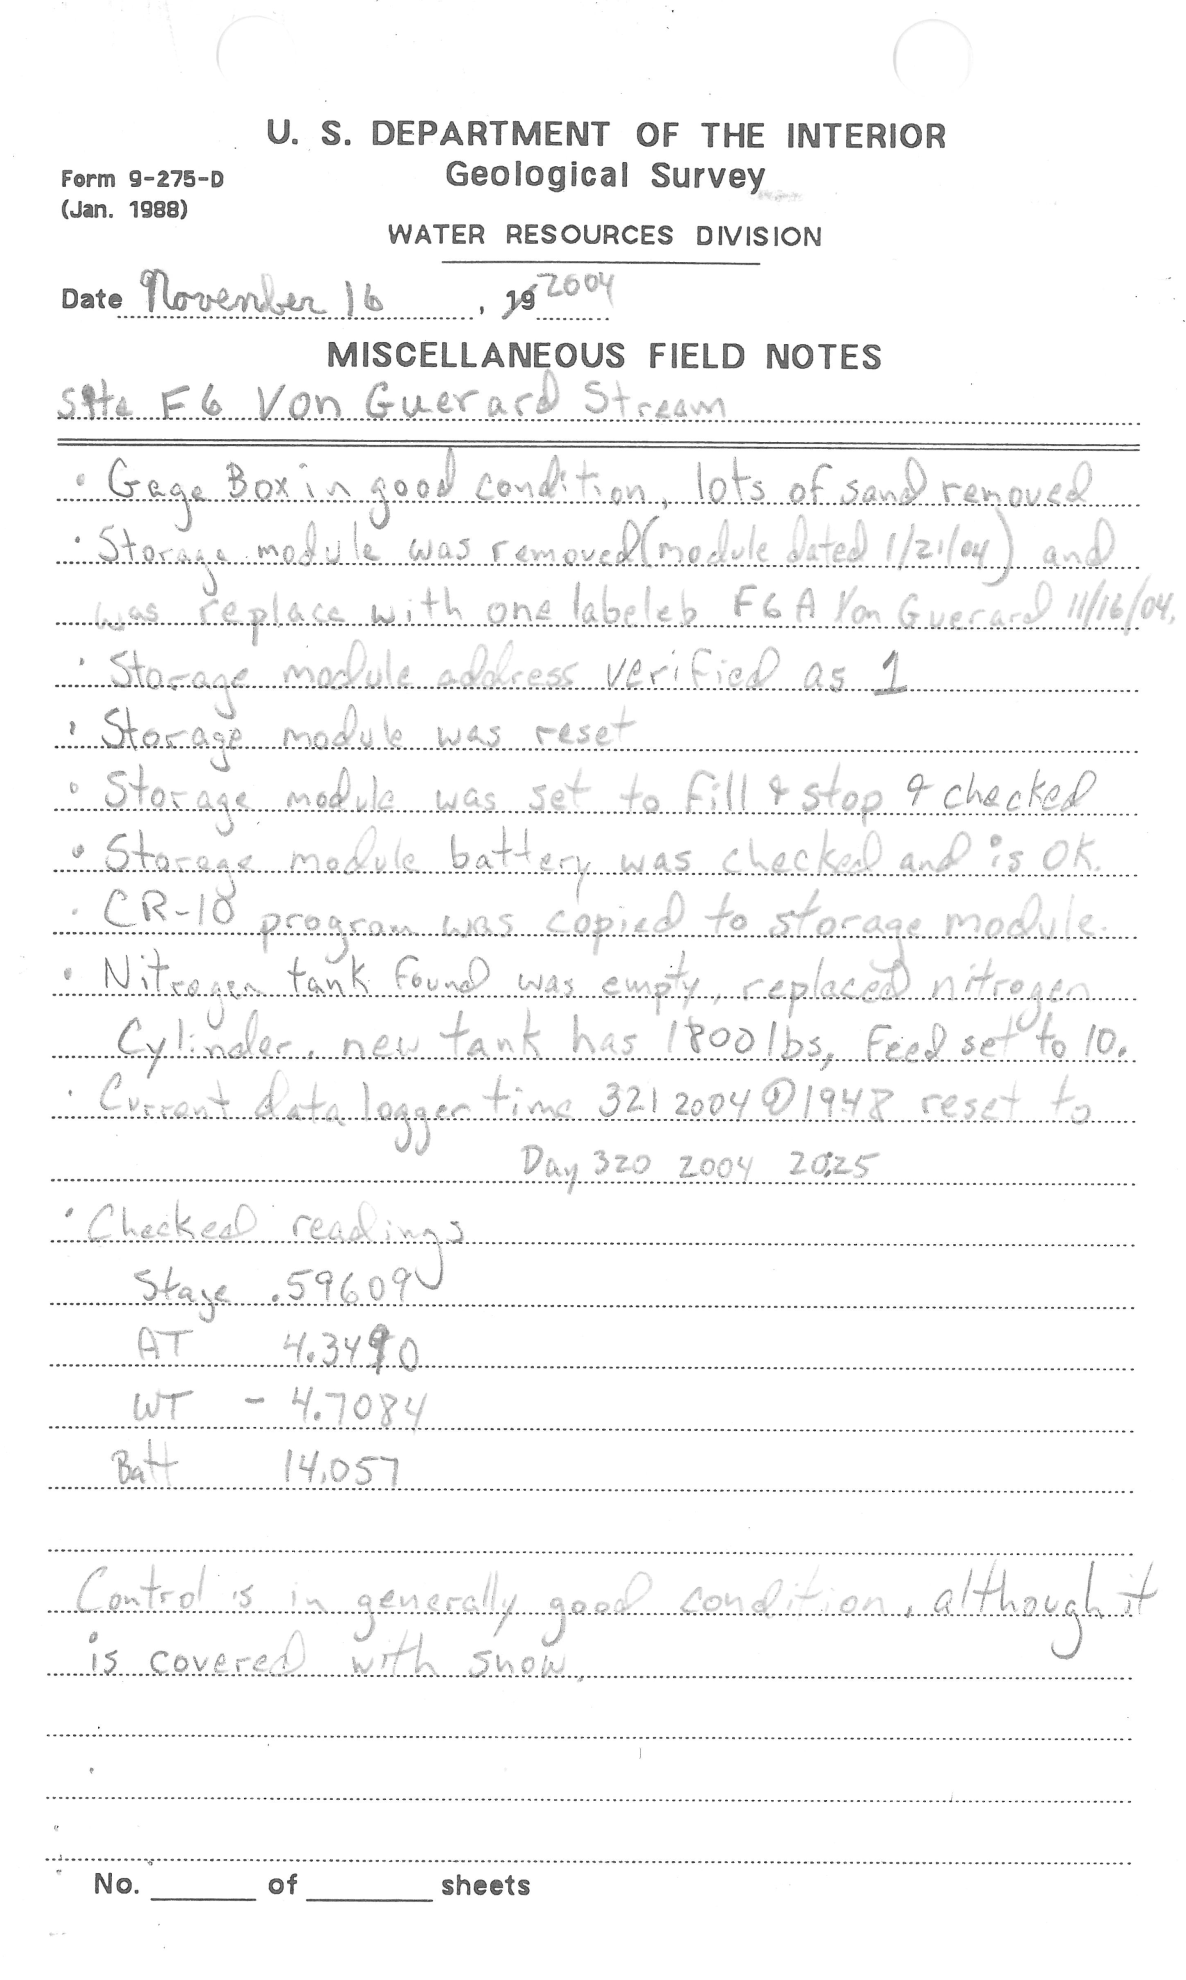 U. S. DEPARTMENT OF THE INTERIOR
Geological Survey
Form 9-275-D
(Jan. 1988)
WATER RESOURCES DIVISION
Date November 16, 19 2004
MISCELLANEOUS FIELD NOTES
Site F6 Von Guerard Stream
• Gage Box in good condition, lots of sand removed
• Storage module was removed (module dated 1/21/04) and
was replace with one labeleb F6A Von Guerard 11/16/04.
• Storage module address verified as 1
• Storage module was reset
• Storage module was set to fill & stop & checked
• Storage module battery was checked and is OK.
• CR-10 program was copied to storage module.
• Nitrogen tank found was empty, replaced nitrogen
Cylinder, new tank has 1800 lbs, Feed set to 10.
• Current data logger time 321 2004 @ 1948 reset to
Day 320 2004 2025
• Checked readings
Stage .59609
AT 4.3490
WT - 4.7084
Batt 14.057
Control is in generally good condition, although it
is covered with snow.
No. ______ of ______ sheets